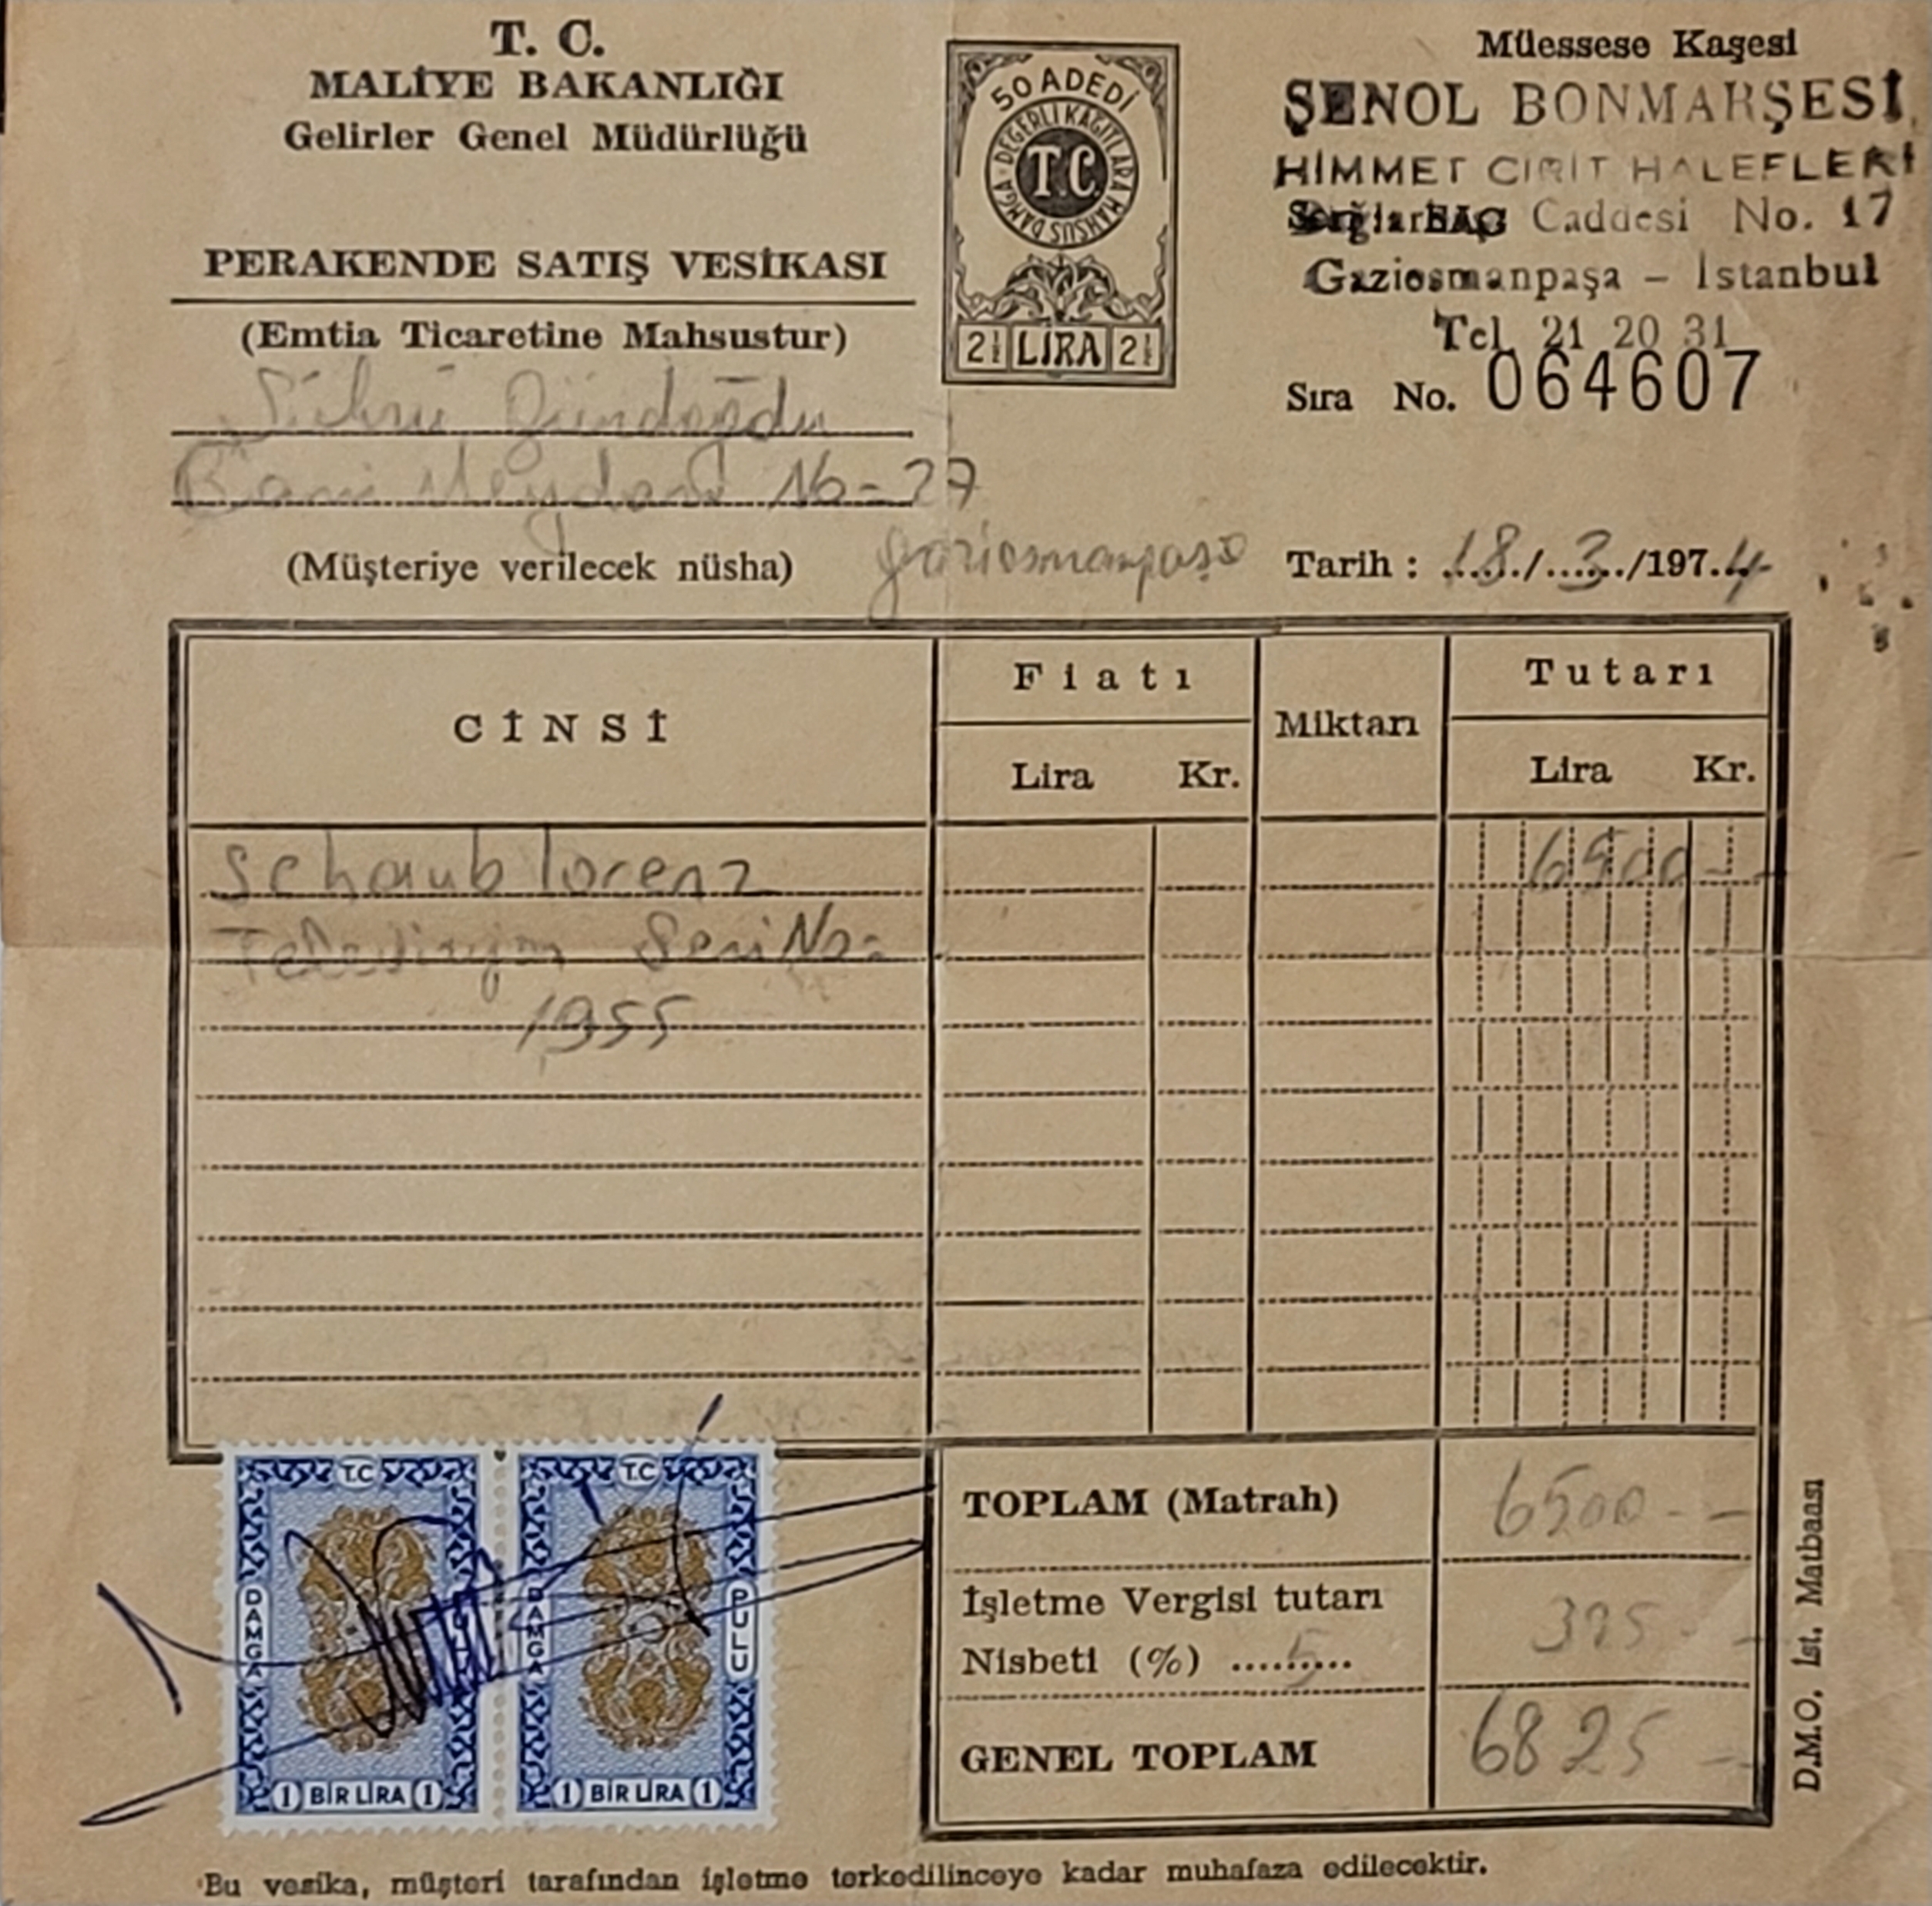 T. C.
MALİYE BAKANLIĞI
Gelirler Genel Müdürlüğü
PERAKENDE SATIŞ VESİKASI
(Emtia Ticaretine Mahsustur)
50 ADEDİ
DEĞERLİ KAĞITLARA MAHSUS DAMGA
T.C.
2½ LİRA 2½
Müessese Kaşesi
ŞENOL BONMARŞESİ
HİMMET CIRIT HALEFLERİ
Caddesi No. 17
Gaziosmanpaşa - İstanbul
Tel. 21 20 31
Sıra No. 064607
Gündoğdu
Meydanı No-27
(Müşteriye verilecek nüsha) gaziosmanpaşa
Tarih : 18/3/1974
CİNSİ Fiatı Miktarı Tutarı
Lira Kr. Lira Kr.
Schaub lorenz 6500--
Televizyon Seri No:
1955
TOPLAM (Matrah) 6500--
İşletme Vergisi tutarı 325--
Nisbeti (%) 5
GENEL TOPLAM 6825-
T.C T.C
DAMGA DAMGA PULU
1 BİR LİRA 1 1 BİR LİRA 1
D.M.O. İst. Matbaası
Bu vesika, müşteri tarafından işletme terkedilinceye kadar muhafaza edilecektir.